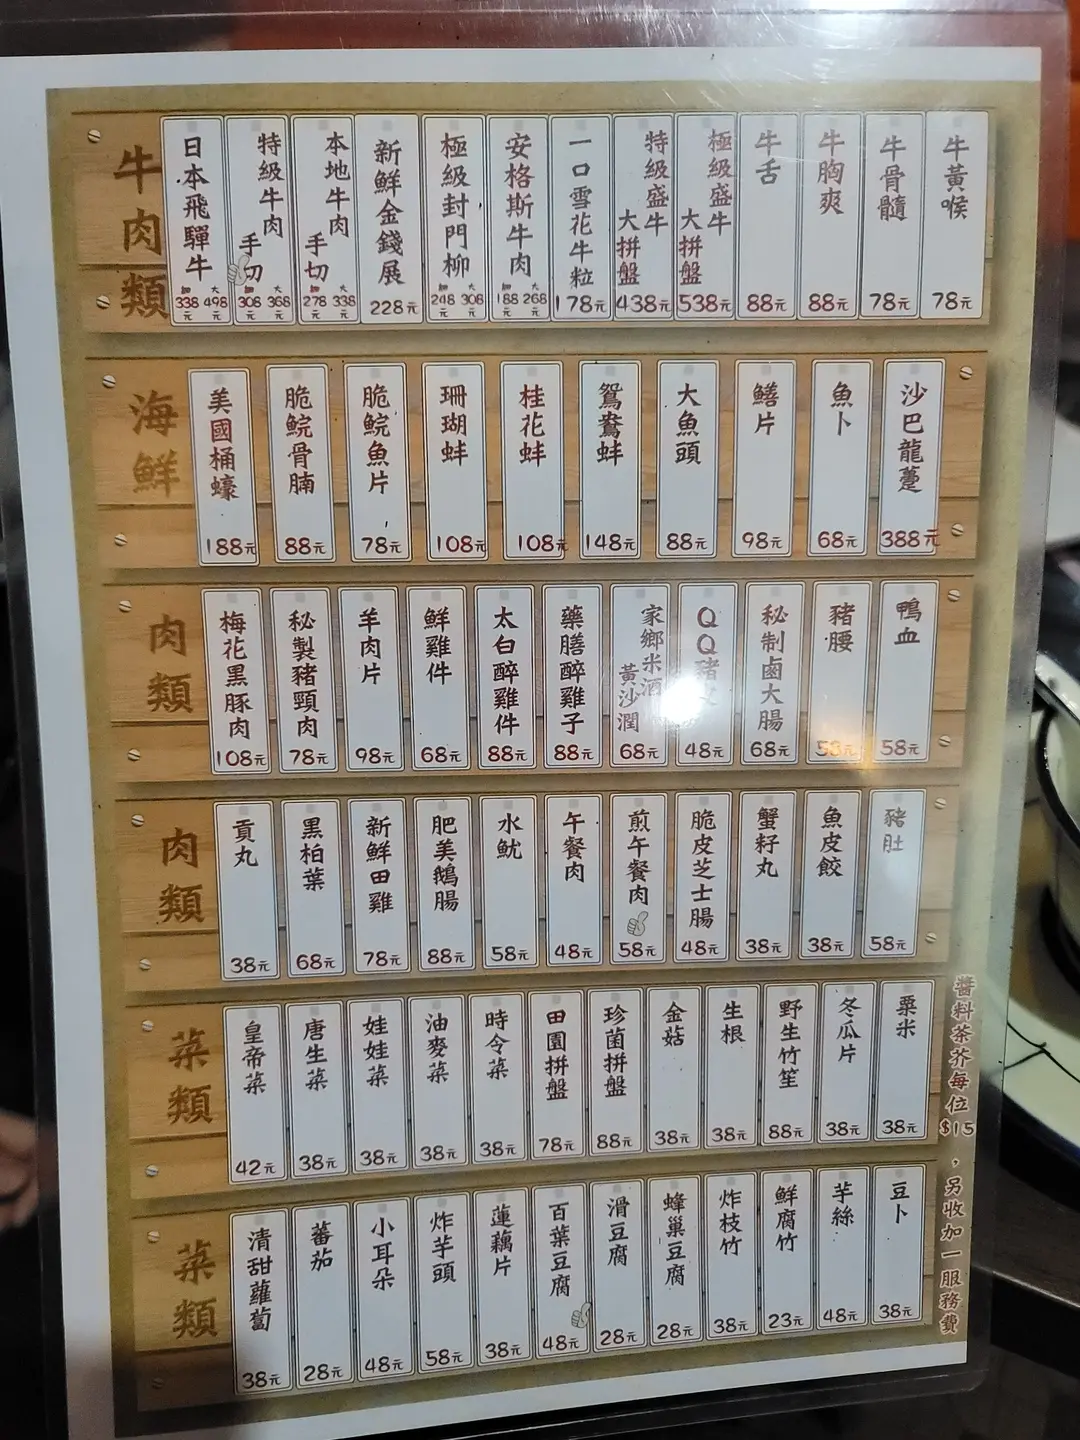 牛肉類
日本飛驒牛 細338元 大498元
特級牛肉手切 細308元 大368元
本地牛肉手切 細278元 大338元
新鮮金錢展 228元
極級封門柳 細248元 大308元
安格斯牛肉 細188元 大268元
一口雪花牛粒 178元
特級盛牛大拼盤 438元
極級盛牛大拼盤 538元
牛舌 88元
牛胸爽 88元
牛骨髓 78元
牛黃喉 78元
海鮮
美國桶蠔 188元
脆鯇骨腩 88元
脆鯇魚片 78元
珊瑚蚌 108元
桂花蚌 108元
鴛鴦蚌 148元
大魚頭 88元
鱔片 98元
魚卜 68元
沙巴龍躉 388元
肉類
梅花黑豚肉 108元
秘製豬頸肉 78元
羊肉片 98元
鮮雞件 68元
太白醉雞件 88元
藥膳醉雞子 88元
家鄉米酒黃沙潤 68元
QQ豬 48元
秘制鹵大腸 68元
豬腰 58元
鴨血 58元
肉類
貢丸 38元
黑柏葉 68元
新鮮田雞 78元
肥美鵝腸 88元
水魷 58元
午餐肉 48元
煎午餐肉 58元
脆皮芝士腸 48元
蟹籽丸 38元
魚皮餃 38元
豬肚 58元
菜類
皇帝菜 42元
唐生菜 38元
娃娃菜 38元
油麥菜 38元
時令菜 38元
田園拼盤 78元
珍菌拼盤 88元
金菇 38元
生根 38元
野生竹笙 88元
冬瓜片 38元
粟米 38元
菜類
清甜蘿蔔 38元
蕃茄 28元
小耳朵 48元
炸芋頭 58元
蓮藕片 38元
百葉豆腐 48元
滑豆腐 28元
蜂巢豆腐 28元
炸枝竹 38元
鮮腐竹 23元
芋絲 48元
豆卜 38元
醬料茶芥每位$15，另收加一服務費